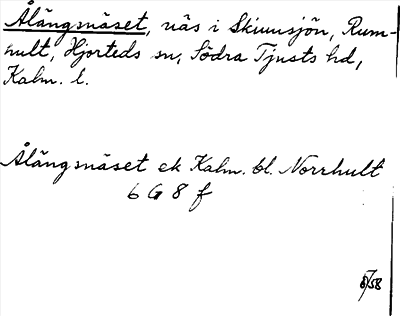 Ålängsnäset, näs i Skiunsjön, Rum-
hult, Hjorteds sn, Södra Tjusts hd,
Kalm. l.
Ålängsnäset ek Kalm. bl. Norrhult
6 G 8 f